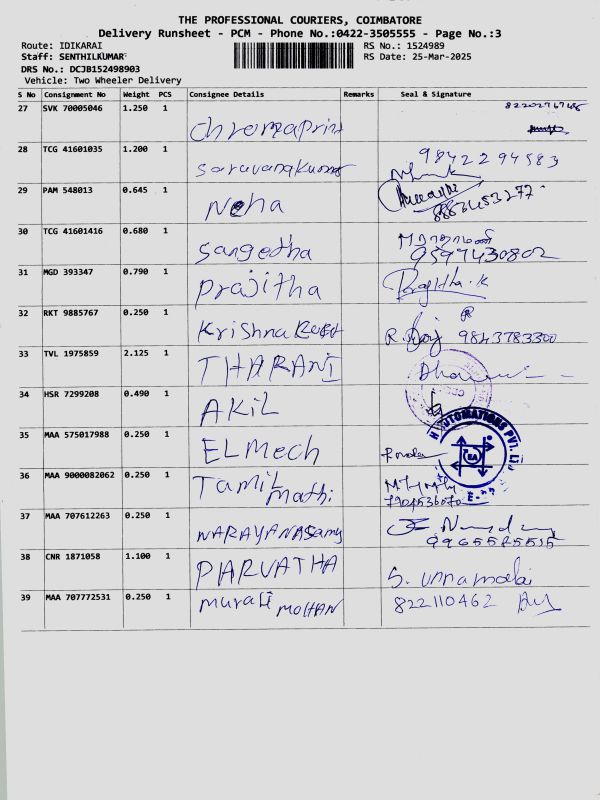 THE PROFESSIONAL COURIERS, COIMBATORE
Delivery Runsheet - PCM - Phone No.:0422-3505555 - Page No.:3
Route: IDIKARAI
RS No.: 1524989
Staff: SENTHILKUMAR
RS Date: 25-Mar-2025
DRS No.: DCJB152498903
Vehicle: Two Wheeler Delivery
S No Consignment No Weight PCS Consignee Details Remarks Seal & Signature
27 SVK 70005046 1.250 1
Chromaprint
28 TCG 41601035 1.200 1 98422 94583
Saravanakumar
29 PAM 548013 0.645 1
Neha 8883453277
30 TCG 41601416 0.680 1
Sangeetha 9597430802
31 MGD 393347 0.790 1
Prajitha Prajitha.K
32 RKT 9885767 0.250 1
Krishna R. 9843783300
33 TVL 1975859 2.125 1
THARANI
34 HSR 7299208 0.490 1
AKIL
35 MAA 575017988 0.250 1
ELMech
AUTOMATIONS PVT. LTD
36 MAA 9000082062 0.250 1
Tamil mathi 7904536070
37 MAA 707612263 0.250 1
NARAYANASamy 9965585515
38 CNR 1871058 1.100 1
PARVATHA S. unnamalai
39 MAA 707772531 0.250 1
murali MOHAN 822110462